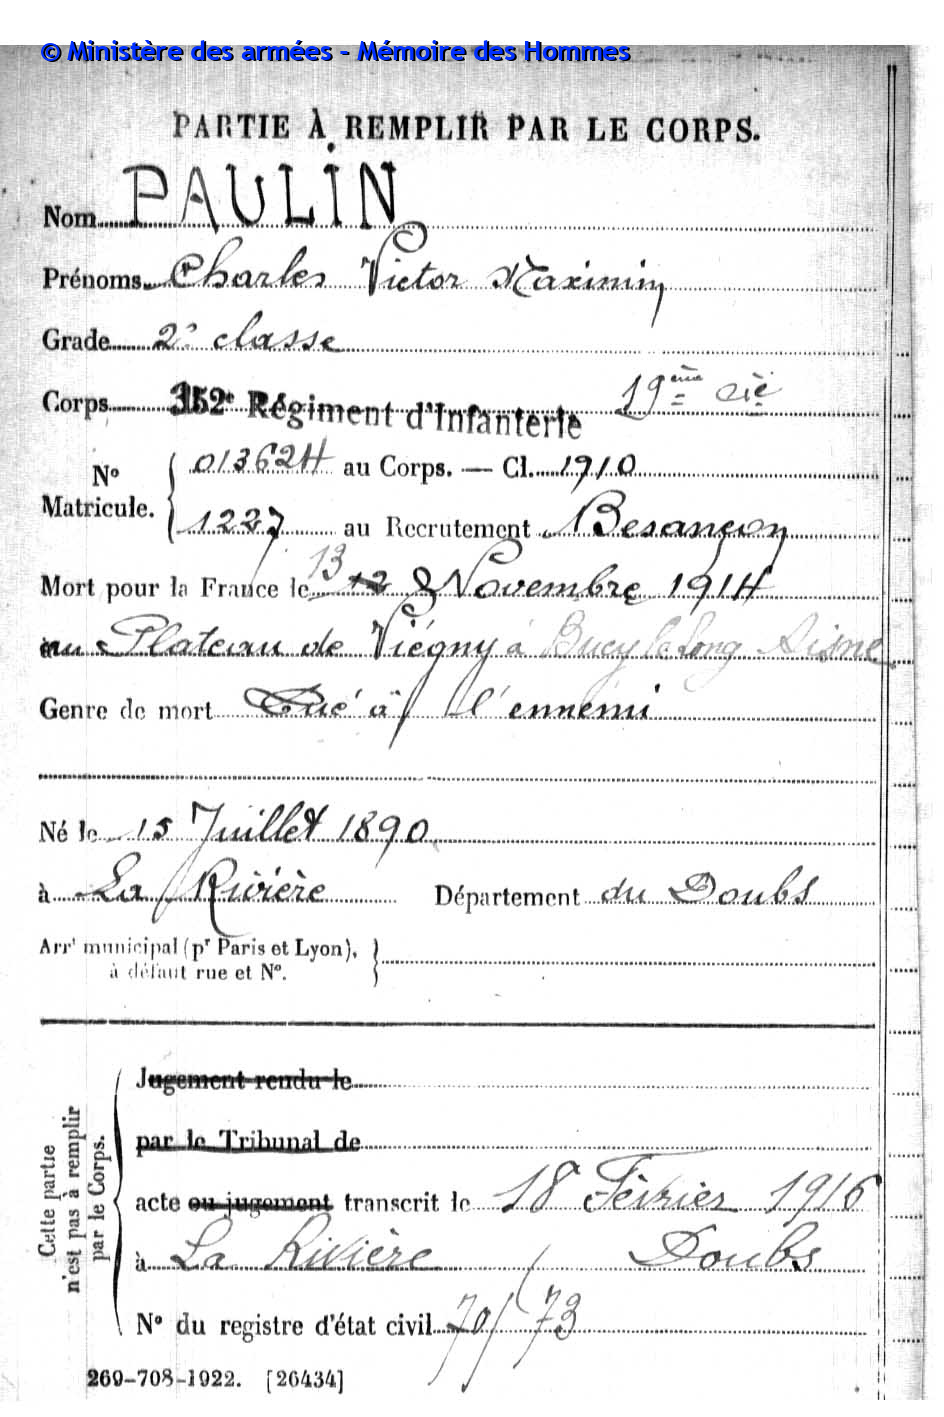 © Ministère des armées - Mémoire des Hommes
PARTIE À REMPLIR PAR LE CORPS.
Nom PAULIN
Prénoms Charles Victor Maximin
Grade 2e classe
Corps 352e Régiment d'Infanterie 19ème Cie
No Matricule. { 013624 au Corps. — Cl. 1910
1227 au Recrutement Besançon
Mort pour la France le 13 Novembre 1914
au Plateau de Viégny à Bucy le Long Aisne
Genre de mort Tué à l'ennemi
Né le 15 Juillet 1890
à La Rivière Département du Doubs
Arrt municipal (pr Paris et Lyon), }
à défaut rue et No.
Cette partie n'est pas à remplir par le Corps.
Jugement rendu le
par le Tribunal de
acte ou jugement transcrit le 18 Février 1916
à La Rivière Doubs
No du registre d'état civil 70/73
269-708-1922. [26434]